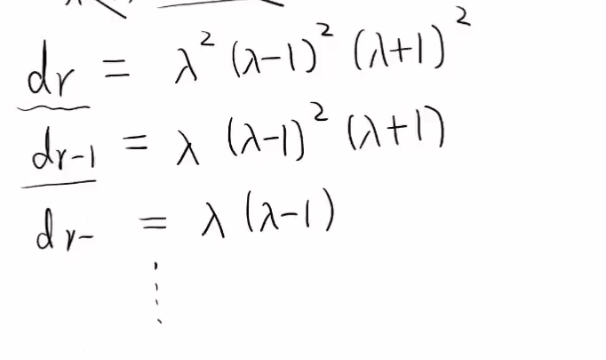 dr = λ²(λ-1)²(λ+1)²
dr-1 = λ(λ-1)²(λ+1)
dr- = λ(λ-1)